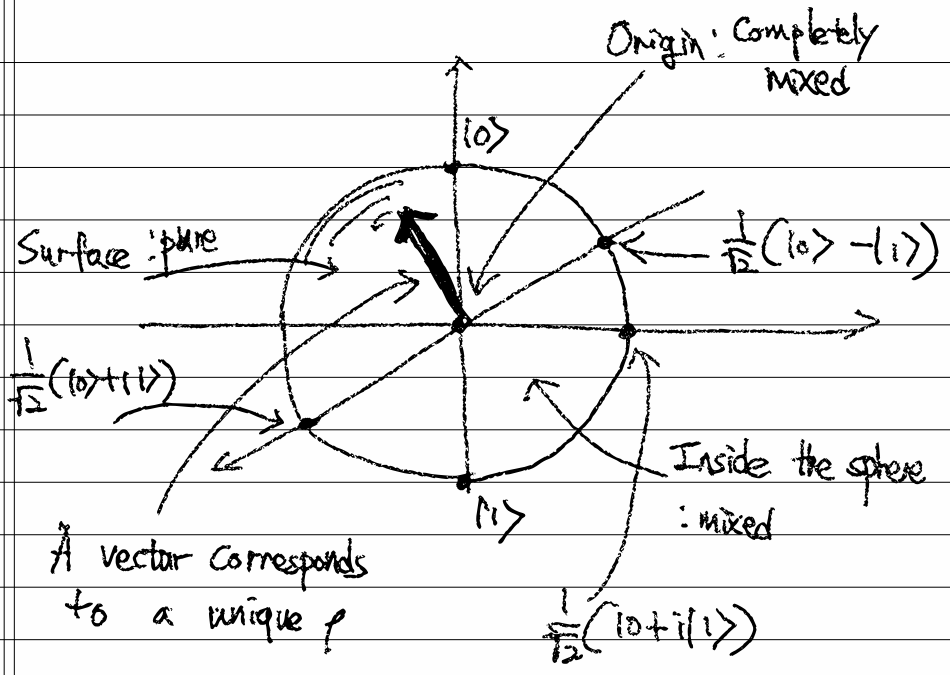 Origin: Completely
mixed
|0⟩
Surface: pure
1/√2(|0⟩-|1⟩)
1/√2(|0⟩+|1⟩)
Inside the sphere
: mixed
|1⟩
A vector corresponds
to a unique ρ
1/√2(|0+i|1⟩)